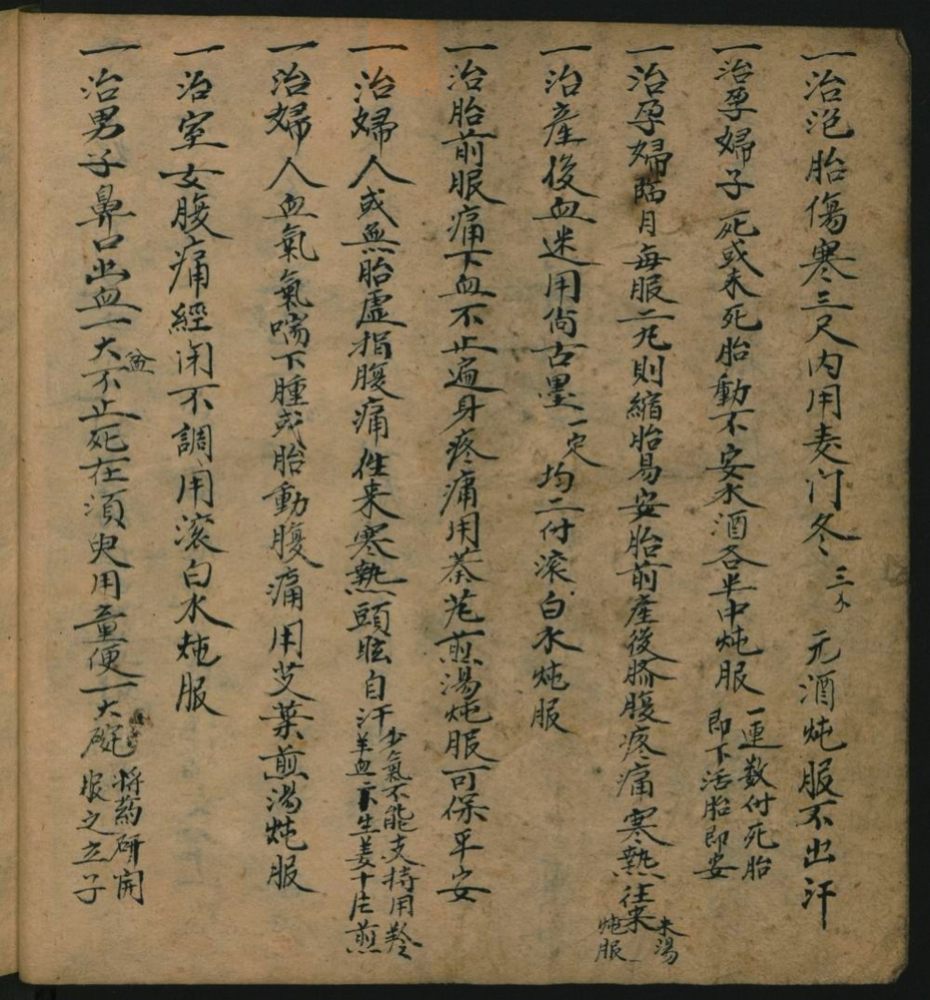 一治孢胎傷寒三尺内用麦门冬三个元酒炖服不出汗
一治孕婦子死或未死胎動不安水酒各半中炖服一連数付死胎即下活胎即安
一治孕婦臨月每服二丸則縮胎易安胎前産後臍腹疼痛寒熱往来米湯炖服
一治産後血迷用尚古墨一定均二付滚白水炖服
一治胎前服痛下血不止遍身疼痛用茶花煎湯炖服可保平安
一治婦人或無胎虚損腹痛徃来寒熱頭眩自汗少氣不能支持用羚羊血二下生姜十片煎
一治婦人血氣氣喘下腫或胎動腹痛用艾葉煎湯炖服
一治室女腹痛經闭不調用滚白水炖服
一治男子鼻口出血一大盆不止死在須臾用童便一大碗将药研開服之立子